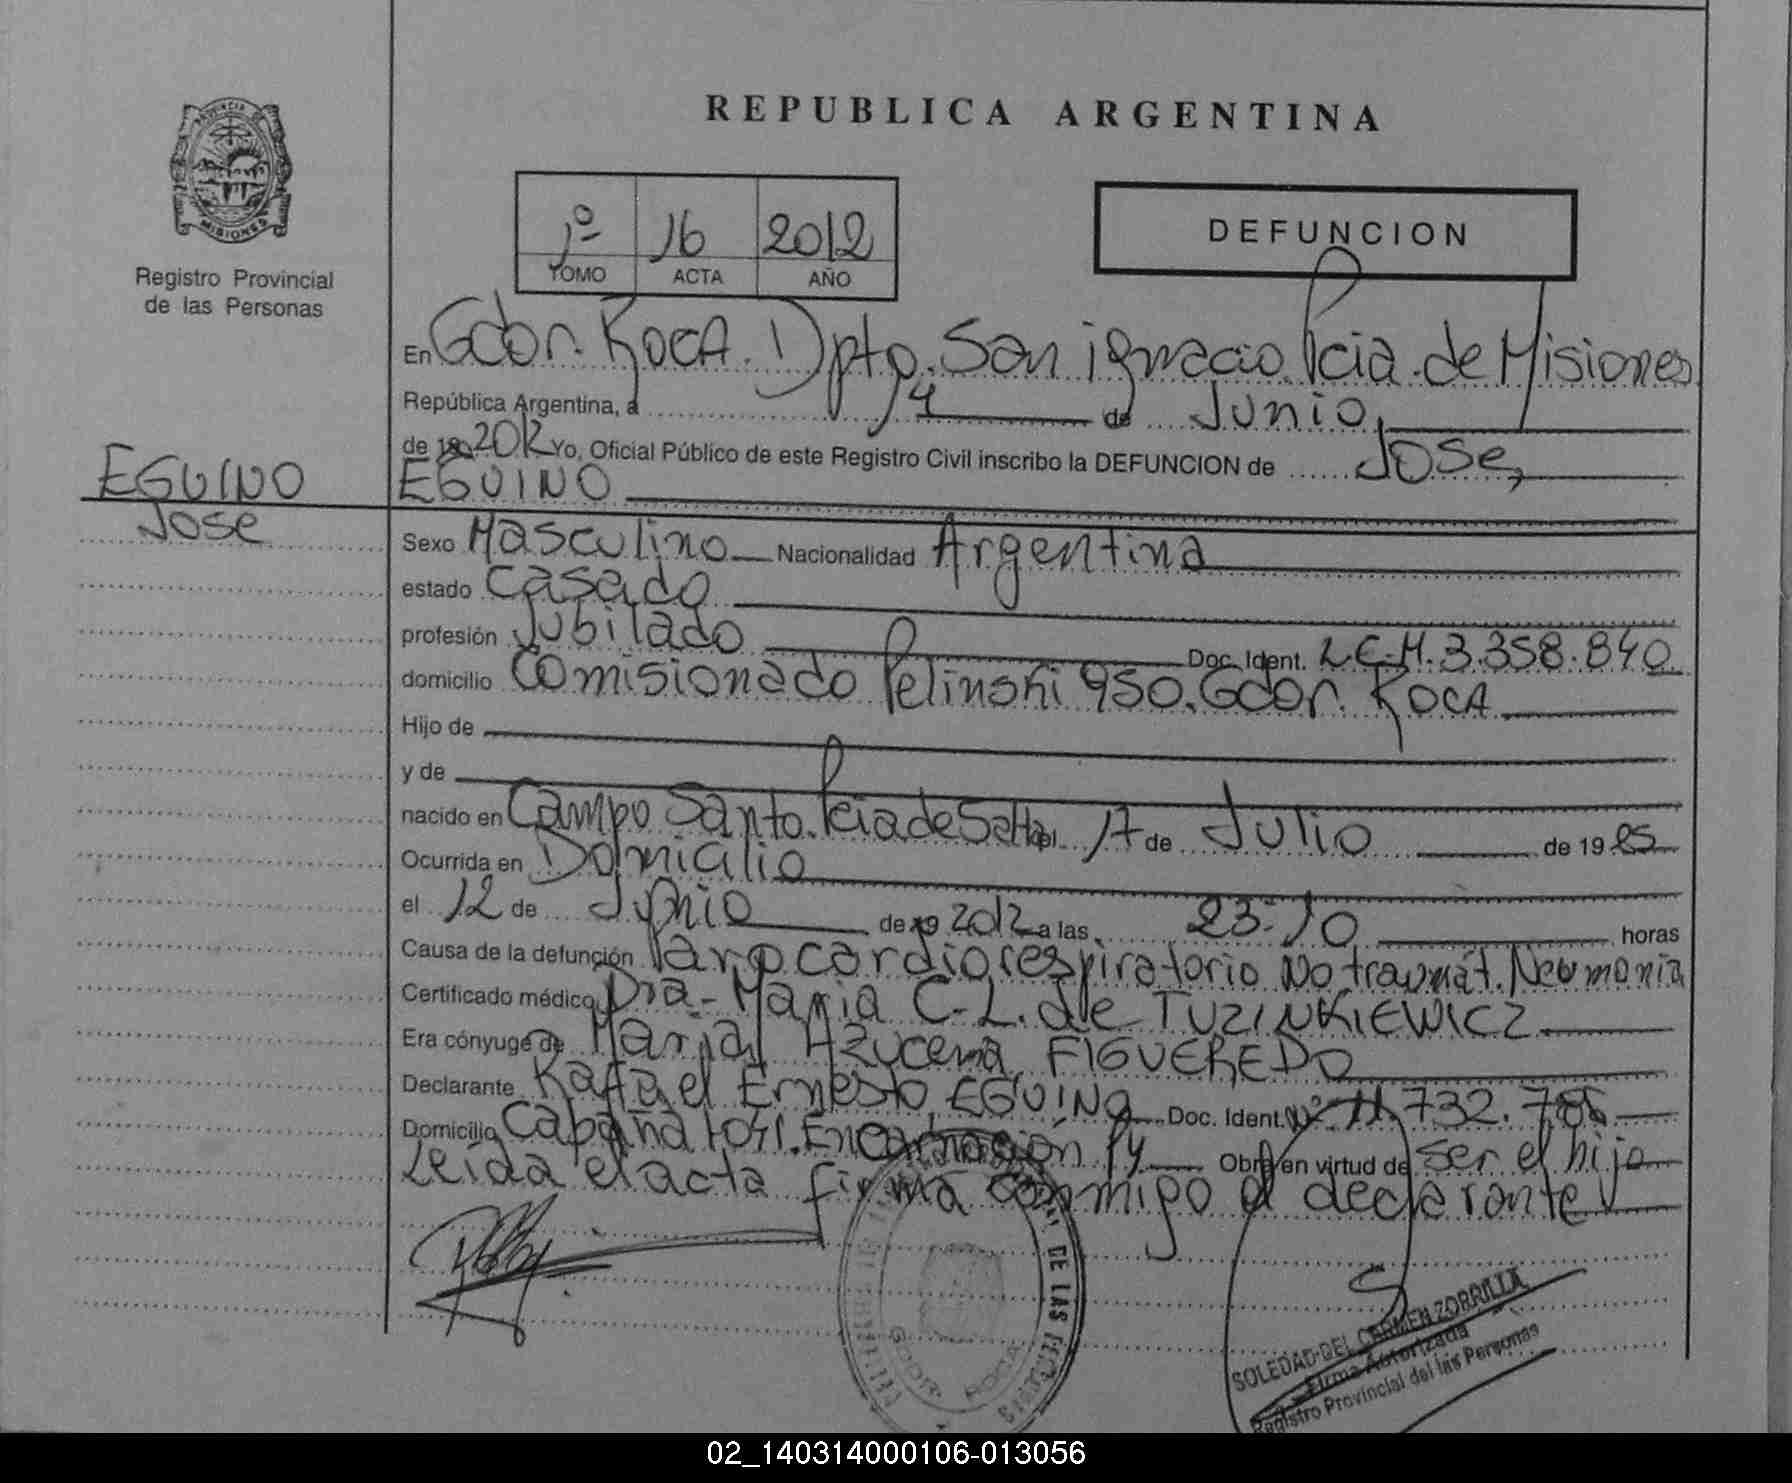 REPUBLICA ARGENTINA
PROVINCIA DE
MISIONES
Registro Provincial
de las Personas
1º 16 2012
TOMO ACTA AÑO
DEFUNCION
En Gdor. Roca. Dpto. San ignacio. Pcia. de Misiones
República Argentina, a 14 de Junio
de 19 2012 Yo, Oficial Público de este Registro Civil inscribo la DEFUNCION de Jose,
EGUINO
EGUINO
Jose
Sexo Masculino Nacionalidad Argentina
estado Casado
profesión Jubilado Doc. Ident. L.E.M. 3.358.840
domicilio Comisionado Pelinski 950. Gdor. Roca
Hijo de
y de
nacido en Campo Santo. Pcia de Salta el 17 de Julio de 19 25
Ocurrida en Domicilio
el 12 de Junio de 19 2012 a las 23:10 horas
Causa de la defunción Paro cardiorespiratorio No traumát. Neumonia
Certificado médico Dra. Maria C. L. de TUZINKIEWICZ
Era cónyuge de Maria Azucena FIGUEREDO
Declarante Rafael Ernesto EGUINO Doc. Ident. Nº 11.732.786
Domicilio Cabaña Encarnación Py Obra en virtud de ser el hijo
Leída el acta firma conmigo el declarante
DE LAS PERSONAS
GDOR. ROCA
SOLEDAD DEL CARMEN ZORRILLA
Firma Autorizada
Registro Provincial del las Personas
02_140314000106-013056